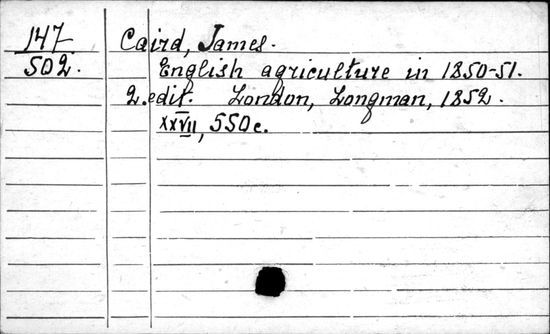 147 Caird, James.
502. English agriculture in 1850-51.
2.edit. London, Longman, 1852.
XXVII, 550c.